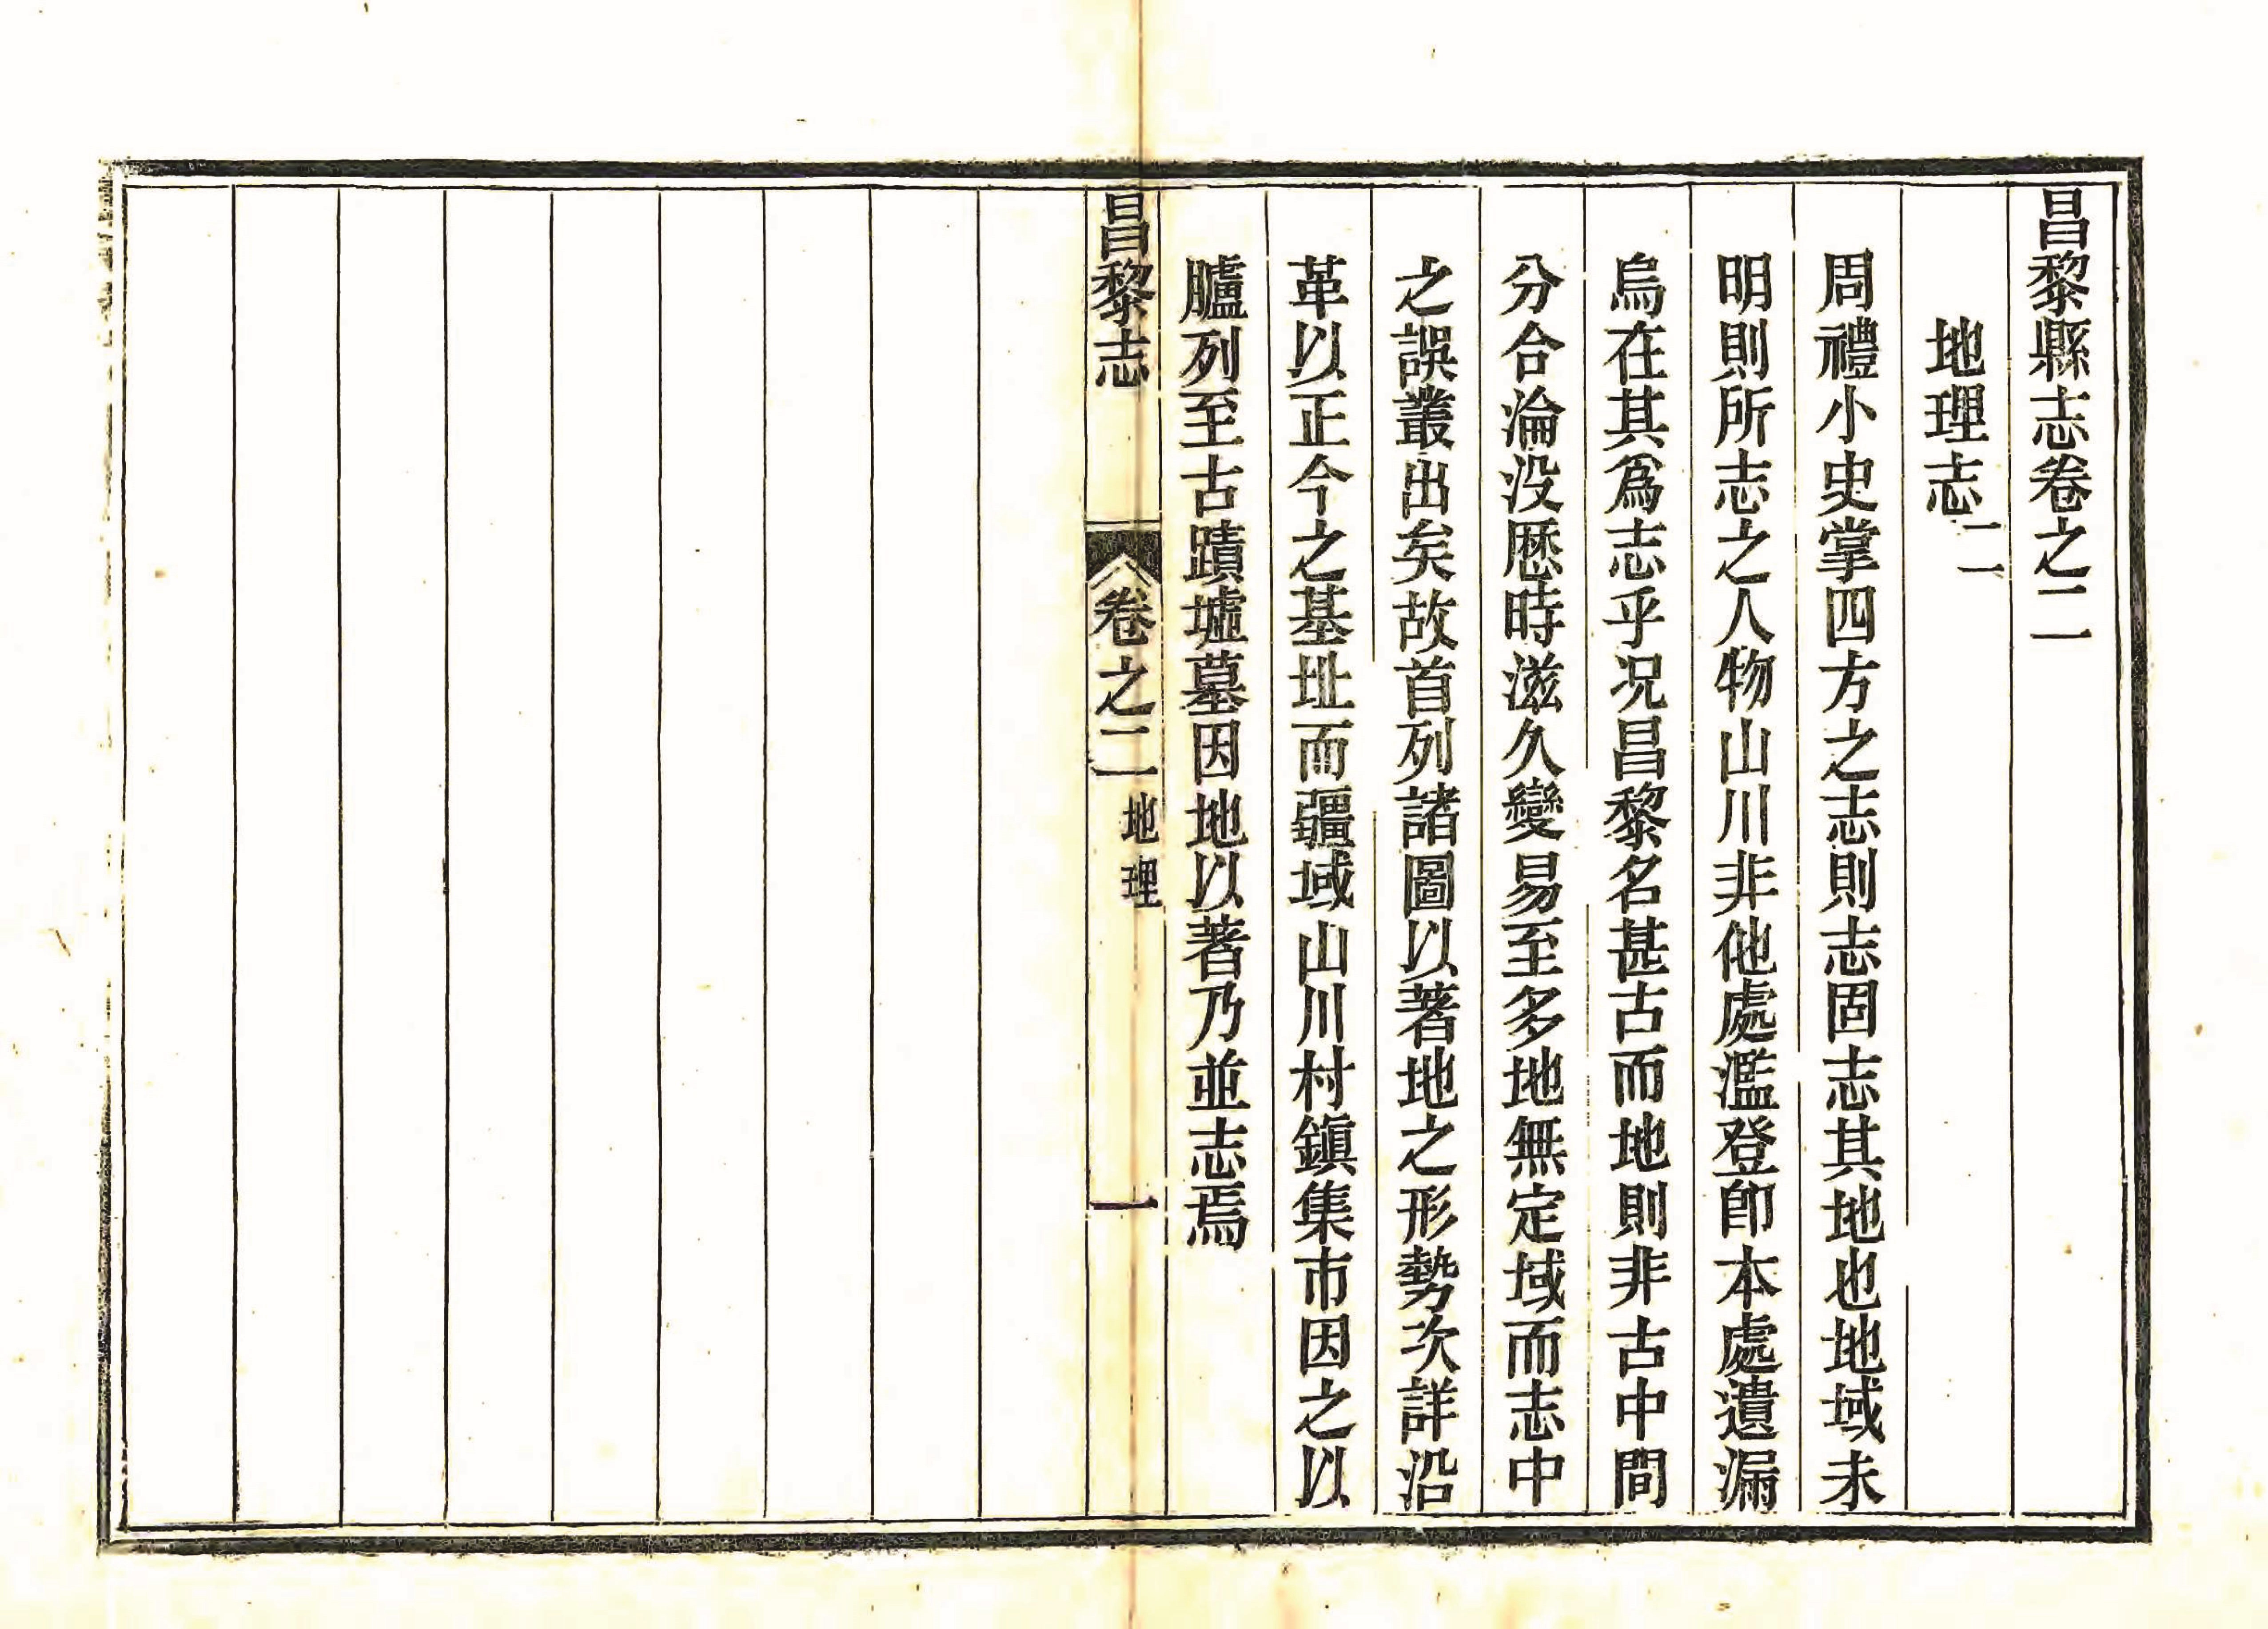 昌黎縣志卷之二
地理志二
周禮小史掌四方之志則志固志其地也地域未
明則所志之人物山川非他處濫登卽本處遺漏
烏在其爲志乎况昌黎名甚古而地則非古中間
分合淪没歷時滋久變易至多地無定域而志中
之誤叢出矣故首列諸圖以著地之形勢次詳沿
革以正今之基址而疆域山川村鎭集市因之以
臚列至古蹟墟墓因地以著乃並志焉
昌黎志 卷之二 地理 一